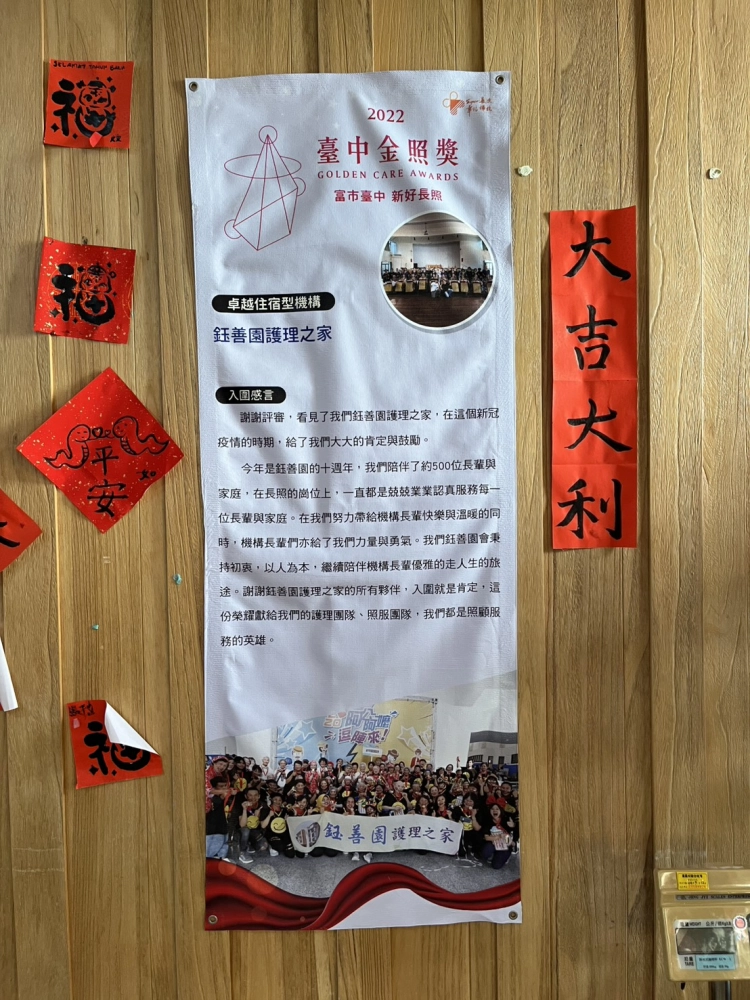 SELAMAT TAHUN BARU
福
福
平安
福
2022
臺中金照獎
GOLDEN CARE AWARDS
富市臺中 新好長照
卓越住宿型機構
鈺善園護理之家
入圍感言
謝謝評審，看見了我們鈺善園護理之家，在這個新冠
疫情的時期，給了我們大大的肯定與鼓勵。
今年是鈺善園的十週年，我們陪伴了約500位長輩與
家庭，在長照的崗位上，一直都是兢兢業業認真服務每一
位長輩與家庭。在我們努力帶給機構長輩快樂與溫暖的同
時，機構長輩們亦給了我們力量與勇氣。我們鈺善園會秉
持初衷，以人為本，繼續陪伴機構長輩優雅的走人生的旅
途。謝謝鈺善園護理之家的所有夥伴，入圍就是肯定，這
份榮耀獻給我們的護理團隊、照服團隊，我們都是照顧服
務的英雄。
阿公阿嬤
逗陣來!
鈺善園護理之家
大吉大利